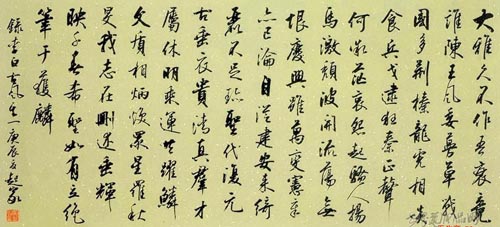 大雅久不作吾衰竟
誰陳王風委蔓草戰
國多荆榛龍虎相啖
食兵戈逮狂秦正聲
何微茫哀怨起騷人揚
馬激頹波開流蕩無
垠廢興雖萬變憲章
亦已淪自從建安來綺
麗不足珍聖代復元
古垂衣貴清真群才
屬休明乘運共躍鱗
文質相炳煥眾星羅秋
旻我志在刪述垂輝
映千春希聖如有立絕
筆于獲麟
錄李白古風其一庚辰